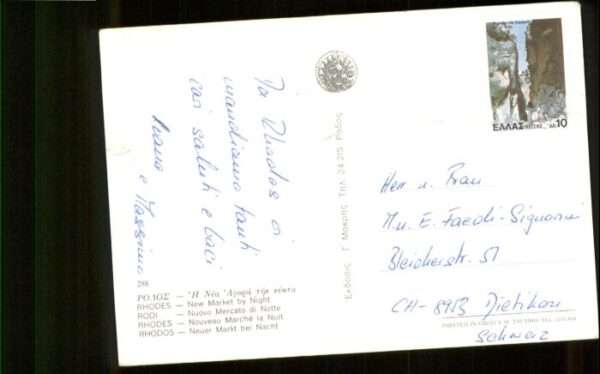 Da Rhodos vi
mandiamo tanti
cari saluti e baci
Ivana
e Massimo
288
ΡΟΔΟΣ — Ἡ Νέα Ἀγορά τήν νύκτα
RHODES — New Market by Night
RODI — Nuovo Mercato di Notte
RHODES — Nouveau Marché la Nuit
RHODOS — Neuer Markt bei Nacht
Ἐκδοσις Γ. Μακρῆς Τηλ. 24.215 Ρόδος
ΕΛΛΑΣ
ΔΡ. 10
Herr u. Frau
M. u. E. Faedi-Signorini
Bleicherstr. 51
CH-8953 Dietikon
Schweiz